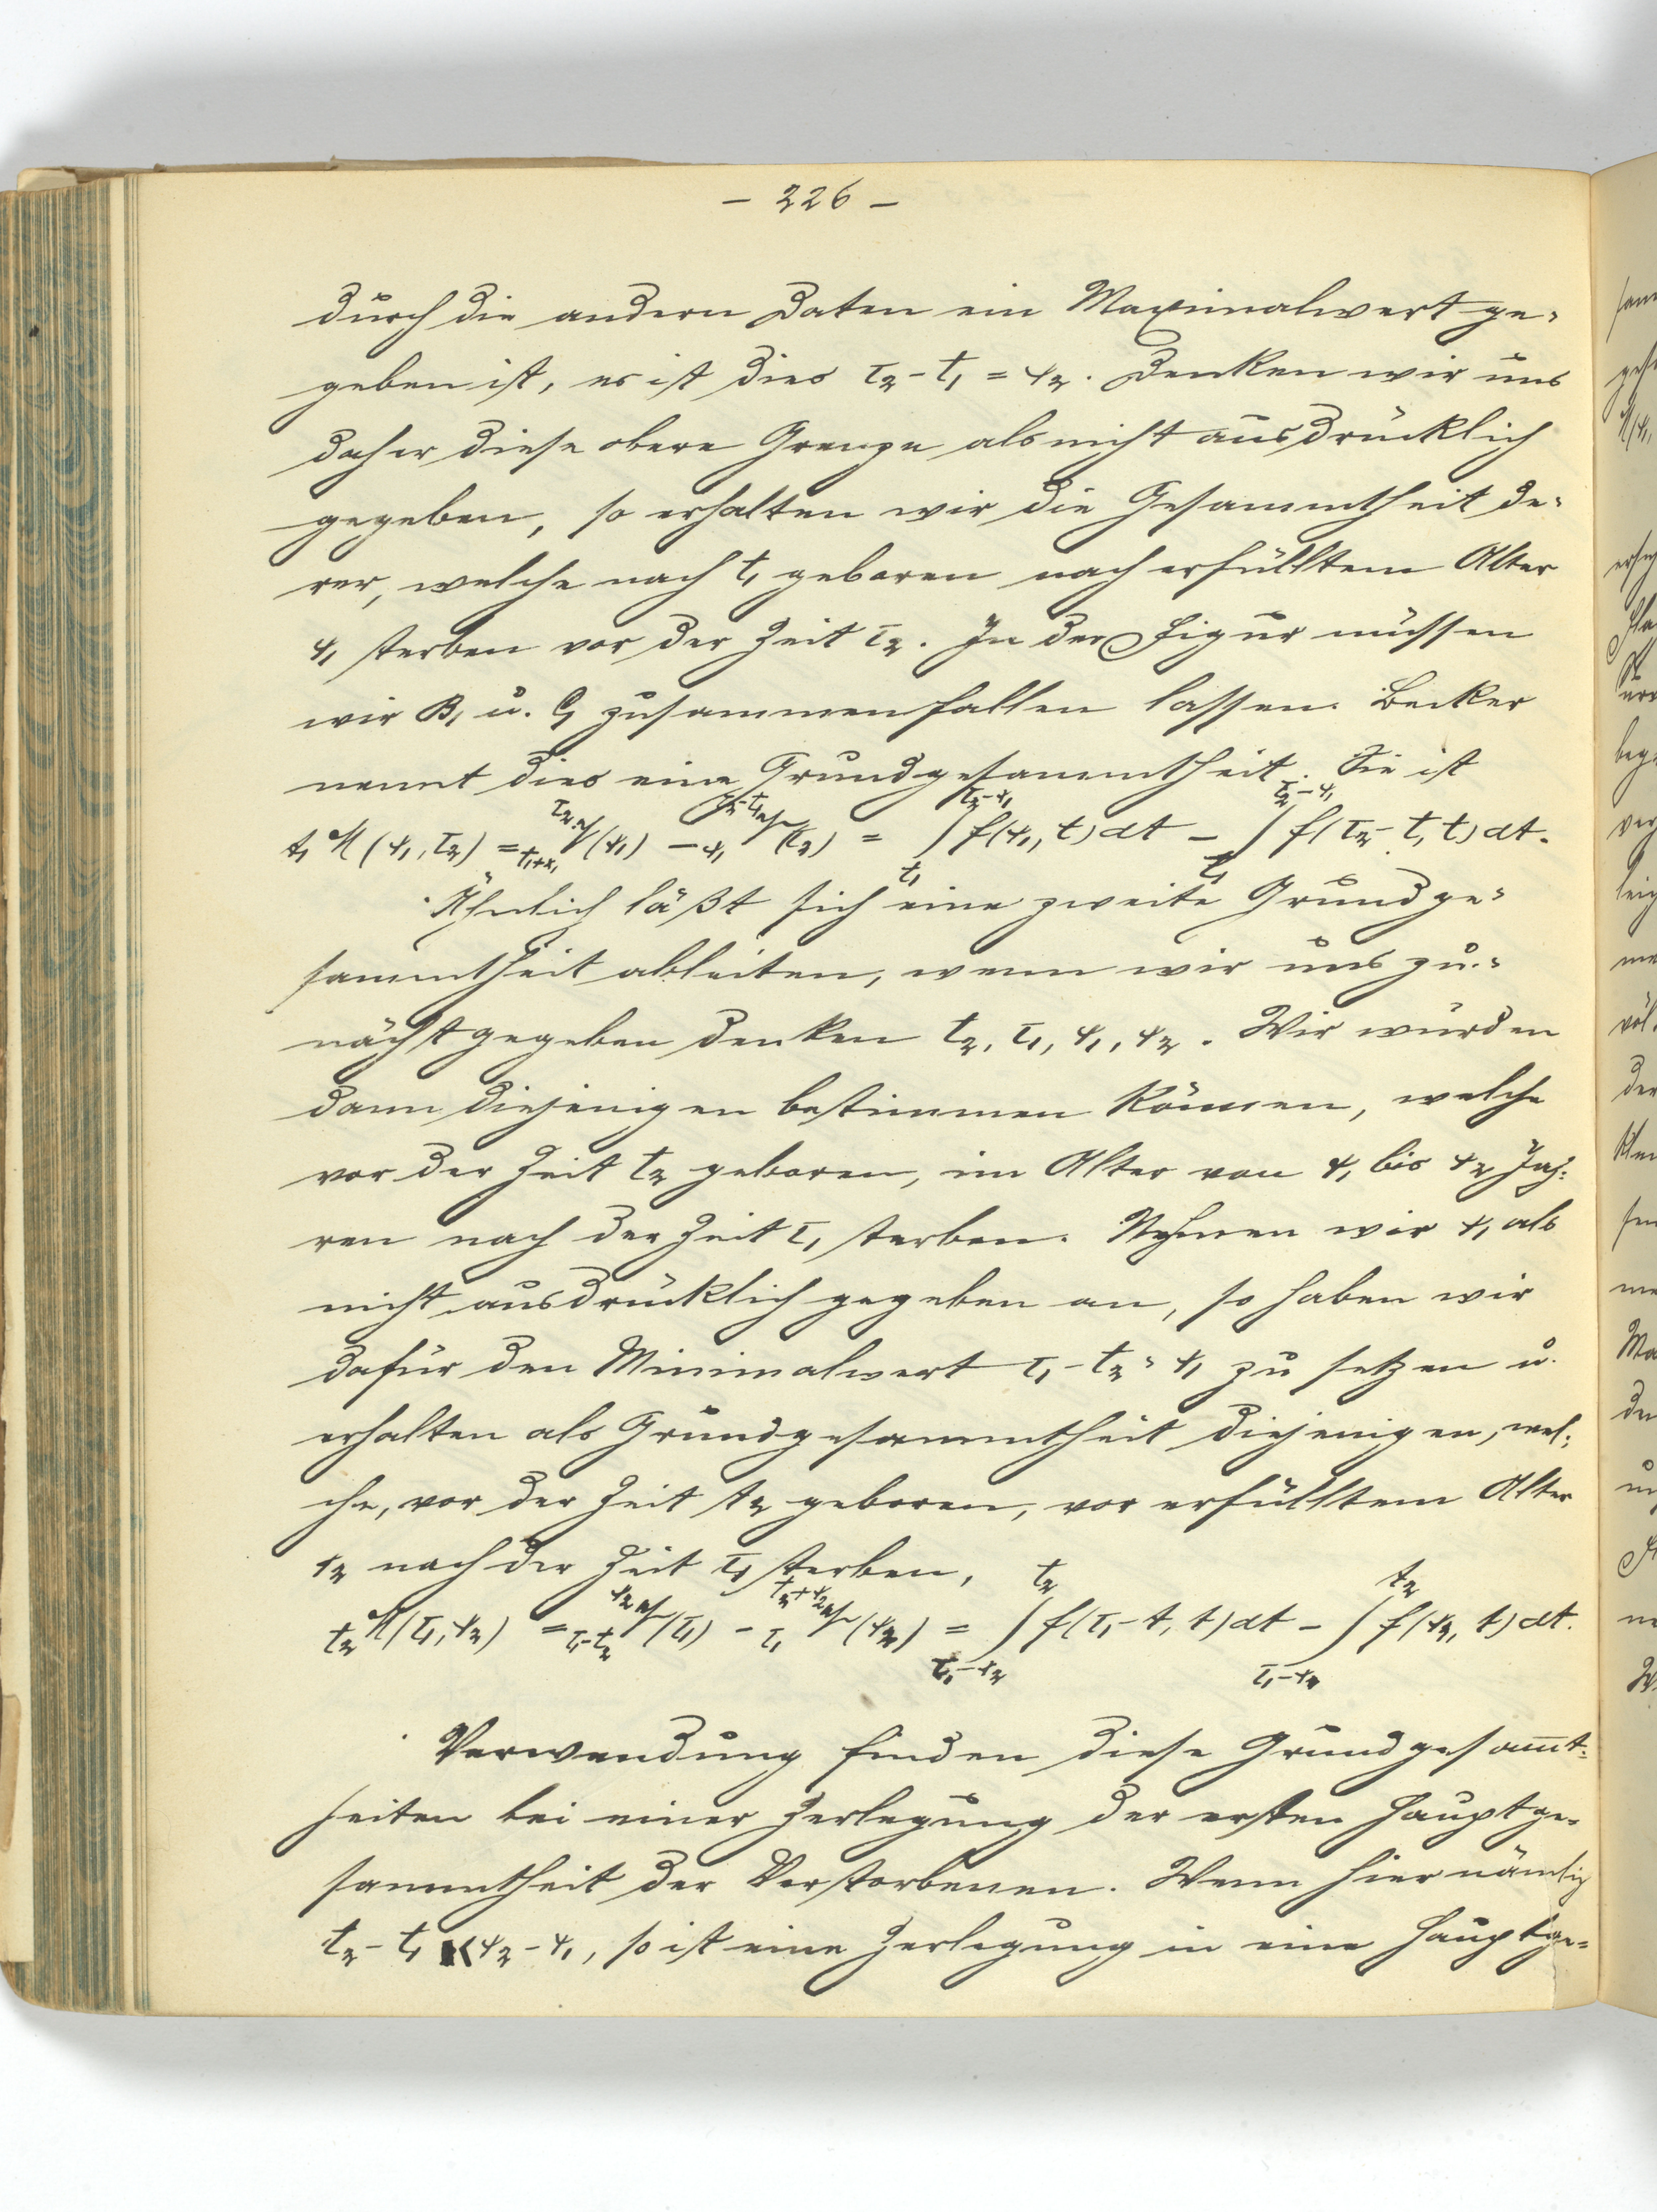 – 226 –
durch die andern Daten ein Maximalwert ge-
geben ist, es ist dies τ₂ - t₁ = x₂. Denken wir uns
daher diese obere Grenze als nicht ausdrücklich
gegeben, so erhalten wir die Gesammtheit de-
rer, welche nach t₁ geboren nach erfülltem Alter
x₁ sterben vor der Zeit τ₂. In der Figur müssen
wir B₁ u. C₁ zusammenfallen lassen. Becker
nennt dies eine Grundgesammtheit. Sie ist
t₁ M (x₁, τ₂) = ∫ f(x₁, t) dt - ∫ f(τ₂ - t, t) dt.
Ähnlich läßt sich eine zweite Grundge-
sammtheit ableiten, wenn wir uns zu-
nächst gegeben denken t₂, τ₁, x₁, x₂. Wir würden
dann diejenigen bestimmen können, welche
vor der Zeit t₂ geboren, im Alter von x₁ bis x₂ Jah-
ren nach der Zeit τ₁ sterben. Nehmen wir x₁ als
nicht ausdrücklich gegeben an, so haben wir
dafür den Minimalwert τ₁ - t₂ = x₁ zu setzen u.
erhalten als Grundgesammtheit diejenigen, wel-
che, vor der Zeit t₂ geboren, vor erfülltem Alter
x₂ nach der Zeit τ₁ sterben,
t₂ M (τ₁, x₂) = ∫ f(τ₁ - t, t) dt - ∫ f(x₂, t) dt.
Verwendung finden diese Grundgesammt-
heiten bei einer Zerlegung der ersten Hauptge-
sammtheit der Verstorbenen. Wenn hier nämlich
t₂ - t₁ < x₂ - x₁, so ist eine Zerlegung in eine Hauptge-